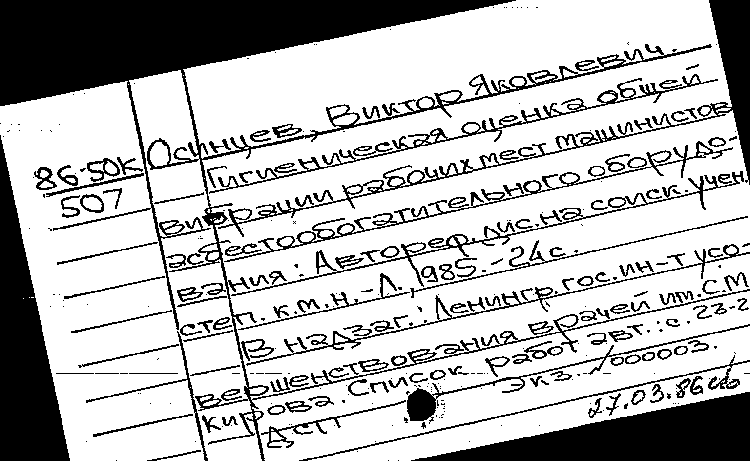 86-50К Осинцев, Виктор Яковлевич.
507
Гигиеническая оценка общей
вибрации рабочих мест машинистов
асбестообогатительного оборудо-
вания: Автореф. дис. на соиск. учен.
степ. к.м.н. -Л., 1985. -24с.
В надзаг.: Ленингр. гос. ин-т усо-
вершенствования врачей им. С.М.
Кирова. Список работ авт.: с. 23-2
ДСП Экз. №000003.
27.03.86